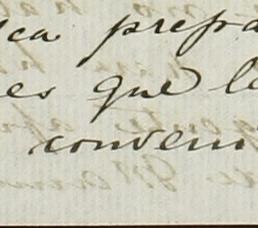 ca prepa
es que le
conveni